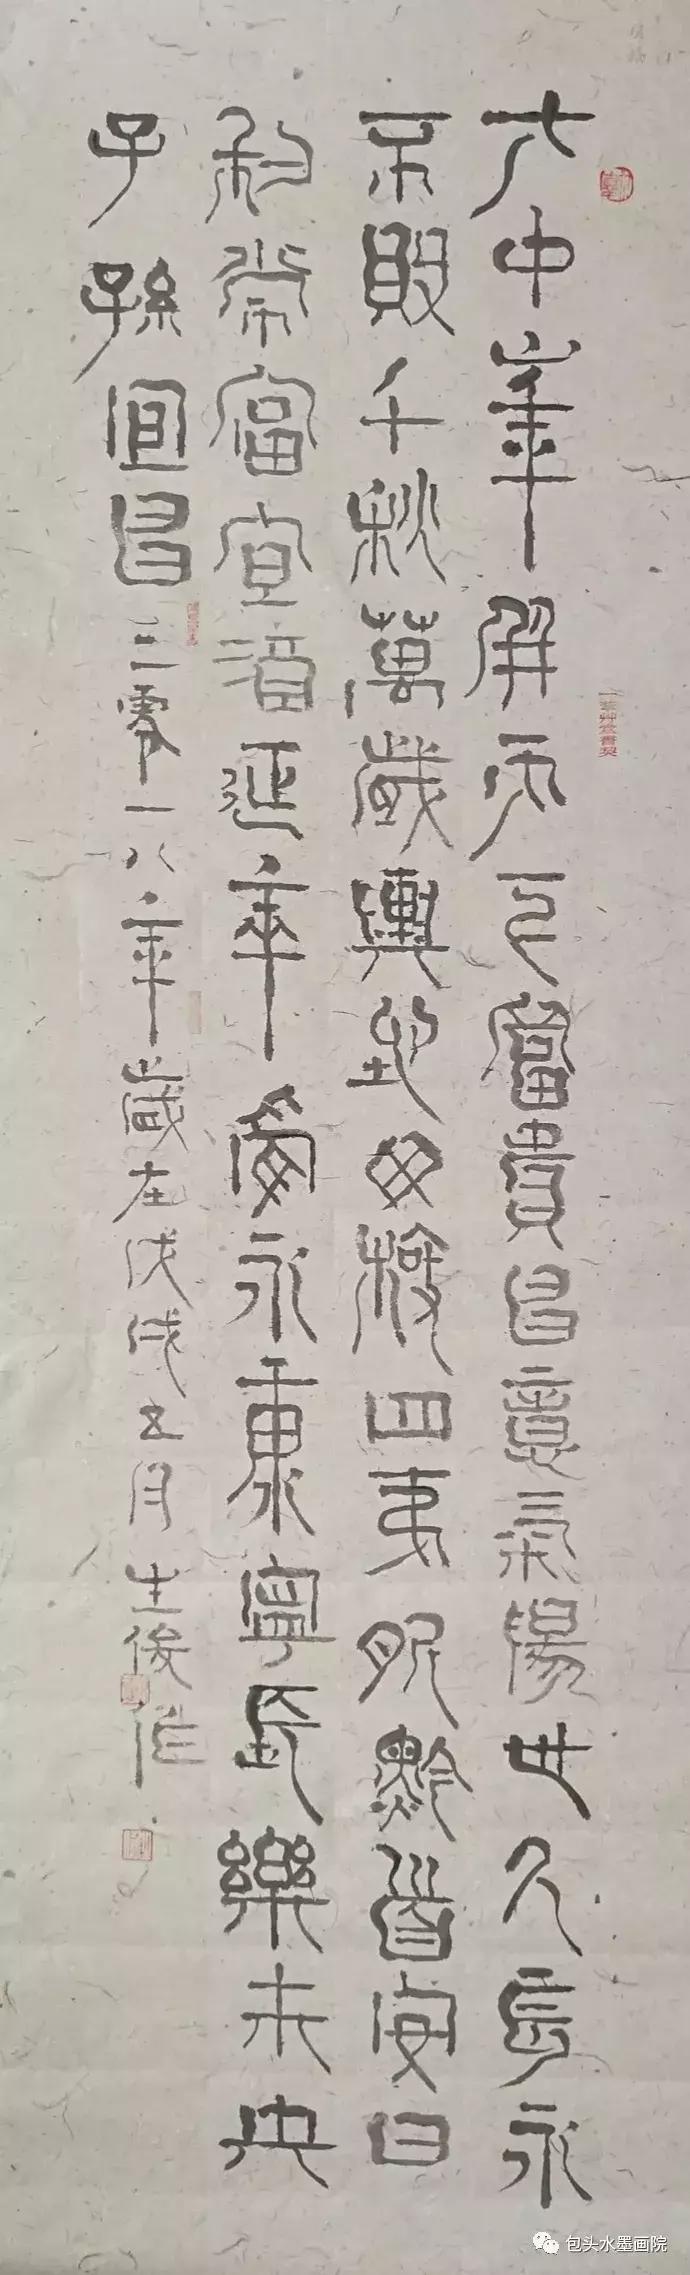 中屏富貴昌意氣陽世久長永
不敗千秋萬歲與地毋極四夷服黔首安日
利常富宜酒延年壽永康寧長樂未央
子孫宜昌 二零一八年歲在戊戌五月 生俊作
包头水墨画院